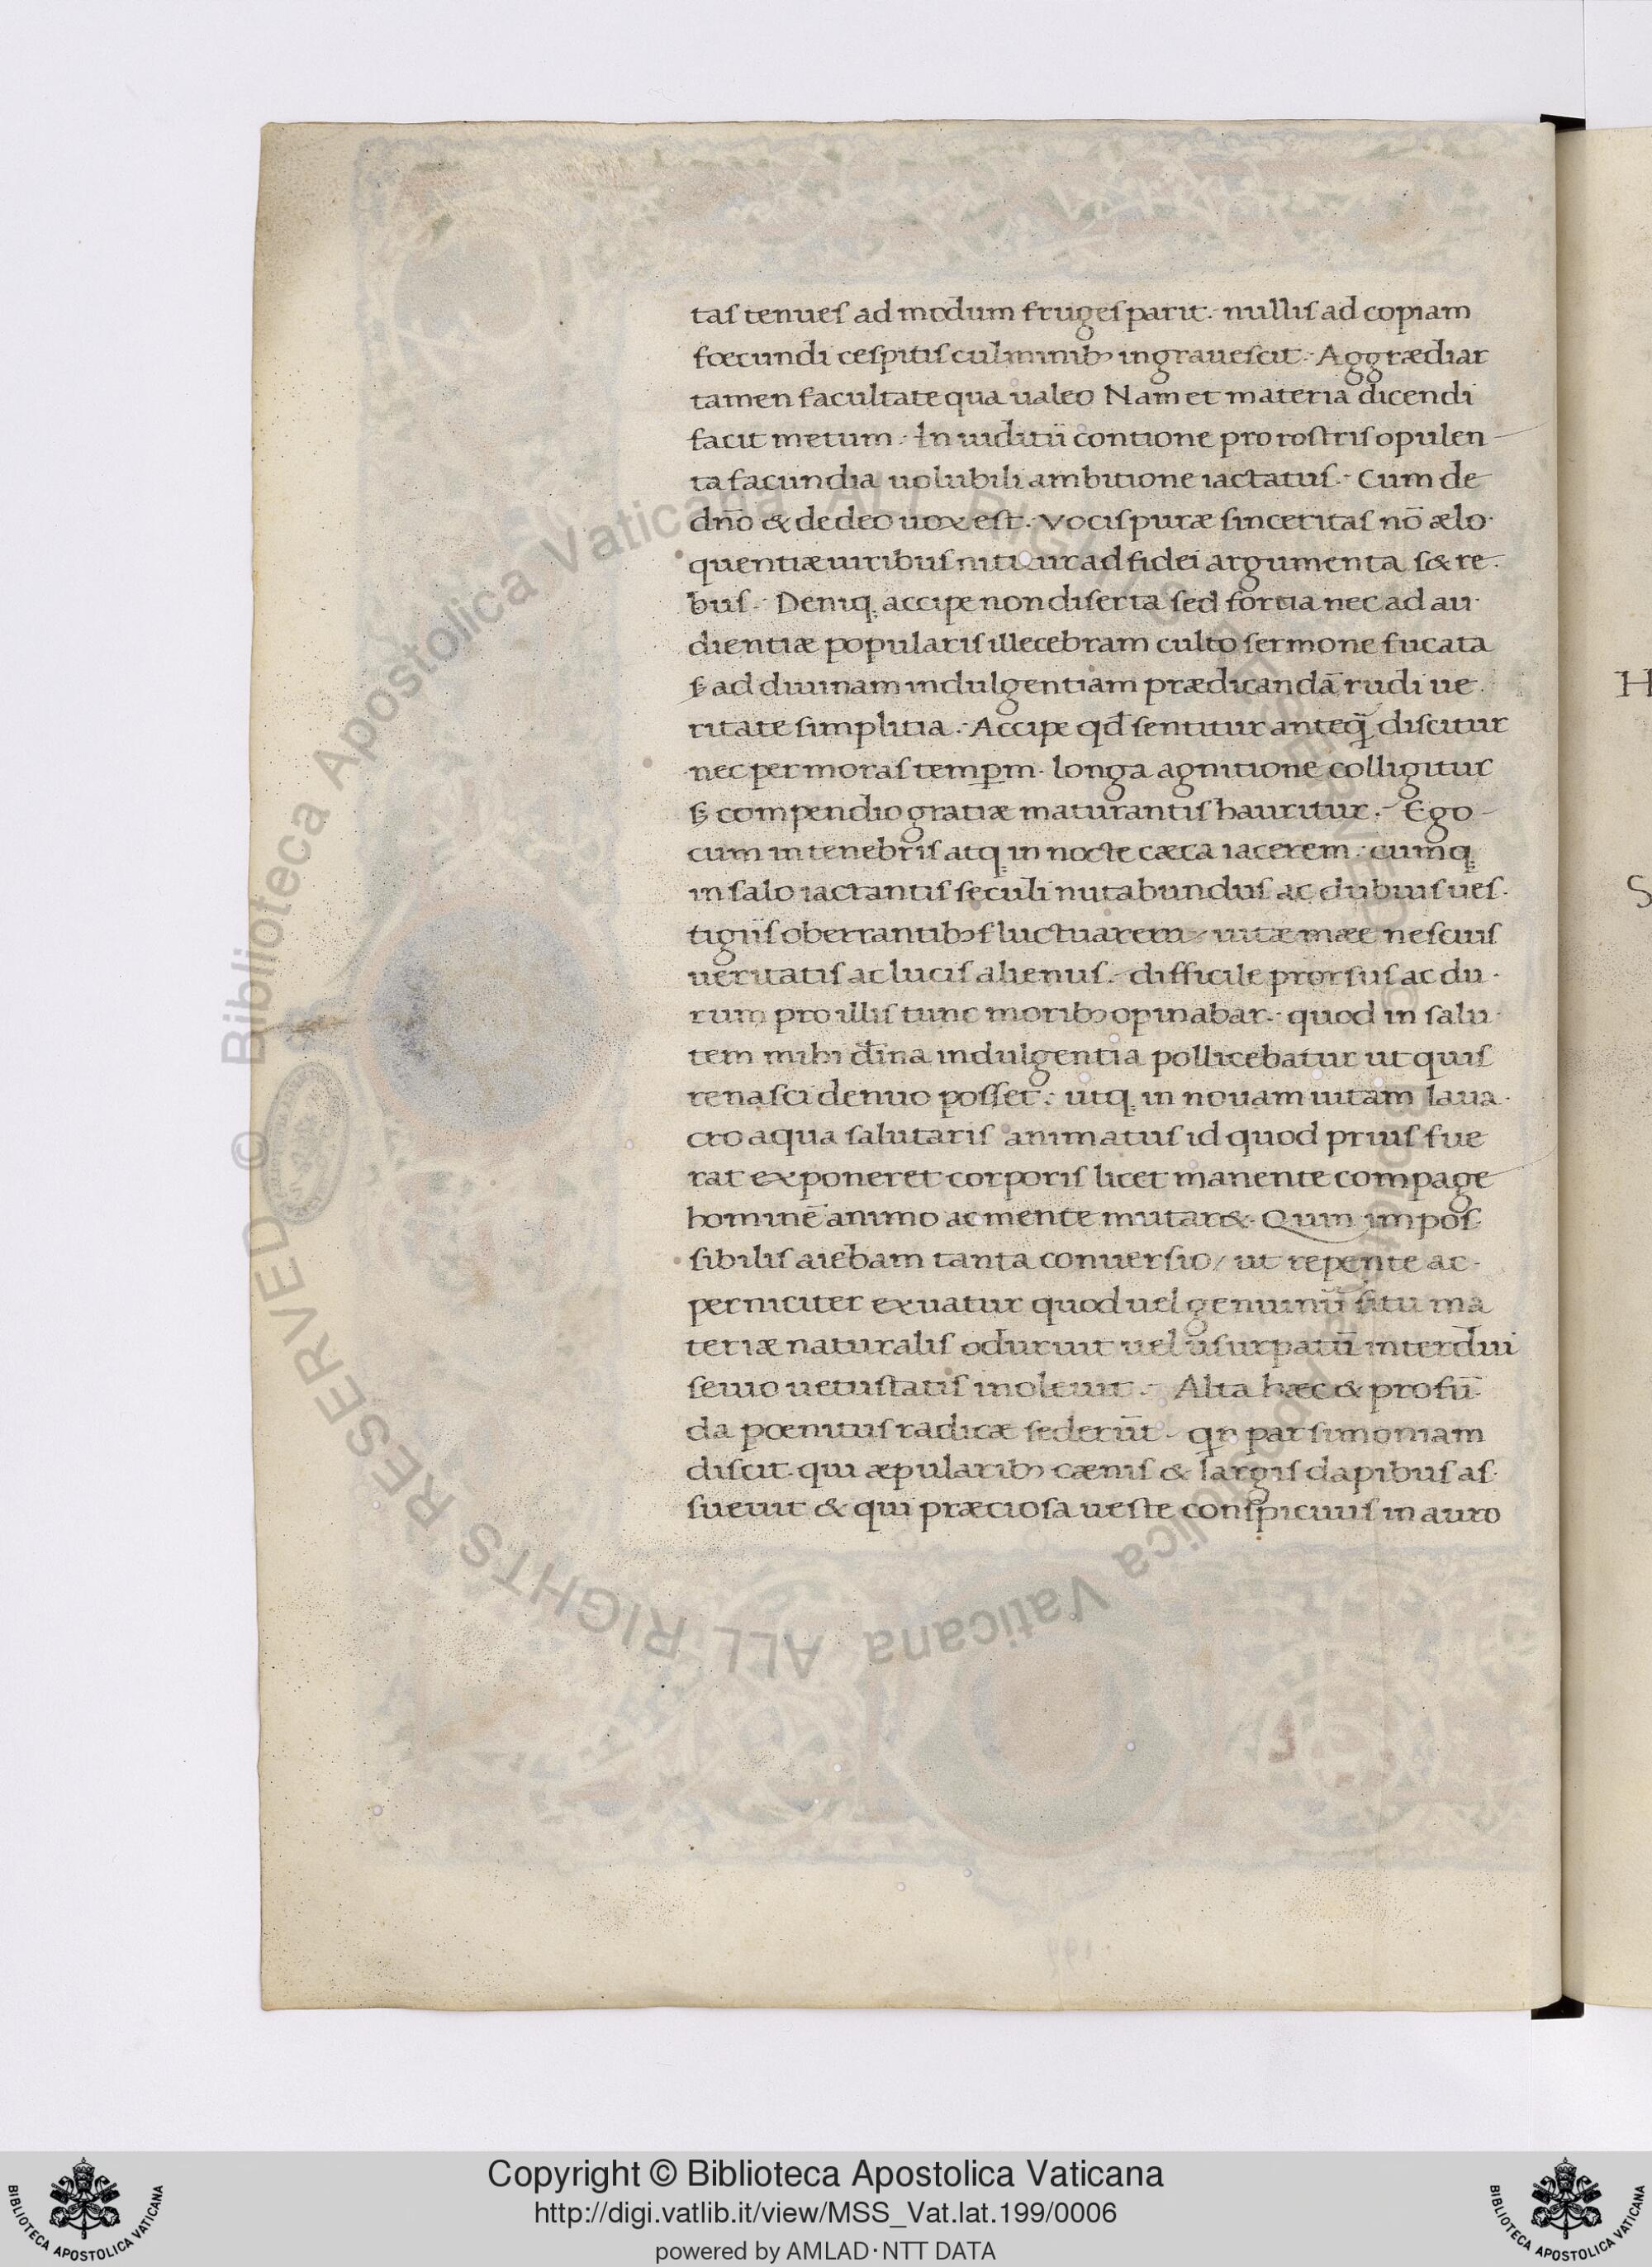 taſ tenueſ ad modum frugeſ parit. nulliſ ad copiam
fœcundi ceſpitiſ culminibꝫ ingraueſcit. Aggrædiar
tamen facultate qua ualeo Nam et materia dicendi
facit metum. In iuditiī contione pro roſtriſ opulen
ta facundia uolubili ambitione iactatuſ. Cum de
dn̄o & de deo uox eſt. Vociſ puræ ſinceritaſ nō ælo
quentiæ uiribuſ nititur ad fidei argumenta ſ& re
buſ. Deniq; accipe non diſerta ſed fortia nec ad au
dientiæ populariſ illecebram culto ſermone fucata
ſꝫ ad diuinam indulgentiam prædicandā rudi ue
ritate ſimplitia. Accipe qd̄ ſentitur anteq̄ diſcitur
nec per moraſ temp̱m. longa agnitione colligitur
ſꝫ compendio gratiæ maturantiſ hauritur. Ego
cum in tenebriſ atq; in nocte cæca iacerem. cumq;
in ſalo iactantiſ ſeculi nutabunduſ ac dubiuſ ueſ
tigiiſ oberrantibꝫ fluctuarem uitæ mæe neſciuſ
ueritatiſ ac luciſ alienuſ. difficile prorſuſ ac du
rum pro illiſ tunc moribꝫ opinabar. quod in ſalu
tem mihi diīna indulgentia pollicebatur ut quiſ
renaſci denuo poſſet. utq; in nouam uitam laua
cro aqua ſalutariſ animatuſ id quod priuſ fue
rat exponeret corporiſ licet manente compage
hominē animo ac mente mutar&. Quin impoſ
ſibiliſ aiebam tanta conuerſio / ut repente ac
perniciter exuatur quod uel genuinū ſitu ma
teriæ naturaliſ oduruit uel uſurpatū interdiu
ſenio uetuſtatiſ inoleuit. Alta hæc & profū
da pœnituſ radicæ ſederūt. qn̄ parſimoniam
diſcit. qui æpularibꝫ cæniſ & largiſ dapibuſ aſ
ſueuit & qui præcioſa ueſte conſpicuuſ in auro
H
S
© Biblioteca Apostolica Vaticana ALL RIGHTS RESERVED © Biblioteca Apostolica Vaticana ALL RIGHTS RESERVED
Copyright © Biblioteca Apostolica Vaticana
http://digi.vatlib.it/view/MSS_Vat.lat.199/0006
powered by AMLAD·NTT DATA
BIBLIOTECA APOSTOLICA VATICANA
BIBLIOTECA APOSTOLICA VATICANA